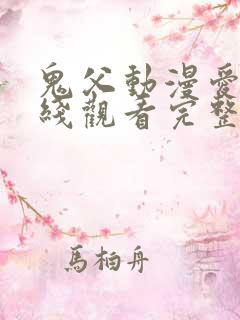 鬼父動漫愛
綫觀看完整
馬柏舟